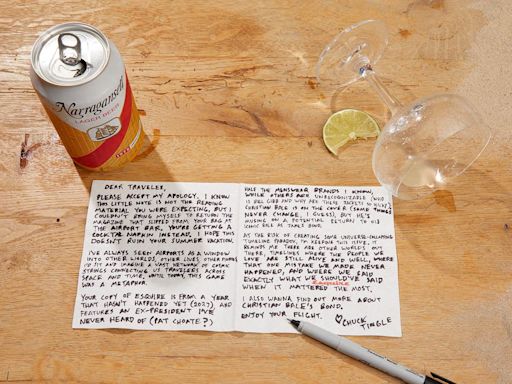 Narragansett
LAGER BEER
DEAR TRAVELER,
PLEASE ACCEPT MY APOLOGY. I KNOW
THIS LITTLE NOTE IS NOT THE READING
MATERIAL YOU WERE EXPECTING, BUT I
COULDN'T BRING MYSELF TO RETURN THE
MAGAZINE THAT SLIPPED FROM YOUR BAG AT
THE AIRPORT BAR. YOU'RE GETTING A
COCKTAIL NAPKIN INSTEAD. I HOPE THIS
DOESN'T RUIN YOUR SUMMER VACATION.
I'VE ALWAYS SEEN AIRPORTS AS A WINDOW
INTO OTHER WORLDS, OTHER LIVES, OTHER TIMES.
I'D SIT AND IMAGINE A VAST WEB OF COSMIC
STRINGS CONNECTING US TRAVELERS ACROSS
SPACE AND TIME. UNTIL TODAY, THIS GAME
WAS A METAPHOR.
YOUR COPY OF ESQUIRE IS FROM A YEAR
THAT HASN'T HAPPENED YET (2027) AND
FEATURES AN EX-PRESIDENT I'VE
NEVER HEARD OF (PAT CHOATE?)
HALF THE MENSWEAR BRANDS I KNOW,
WHILE OTHERS ARE UNRECOGNIZABLE (WHO
IS DEL GIBB AND WHY ARE THERE RECIPES SO HEAVY)
CHRISTIAN BALE IS ON THE COVER (SOME THINGS
NEVER CHANGE, I GUESS), BUT HE'S
MUSING ON A POTENTIAL RETURN TO HIS
ICONIC ROLE AS JAMES BOND.
AT THE RISK OF CREATING SOME UNIVERSE-COLLAPSING
TIMELINE PARADOX, I'M KEEPING THIS ISSUE. IT
REMINDS ME THERE ARE OTHER WORLDS OUT
THERE, TIMELINES WHERE THE PEOPLE WE
LOVE ARE STILL ALIVE AND WELL, WHERE
THAT ONE MISTAKE WE MADE NEVER
HAPPENED, AND WHERE WE SAID
EXACTLY WHAT WE SHOULD'VE SAID
WHEN IT MATTERED THE MOST.
I ALSO WANNA FIND OUT MORE ABOUT
CHRISTIAN BALE'S BOND.
ENJOY YOUR FLIGHT.
CHUCK
TINGLE